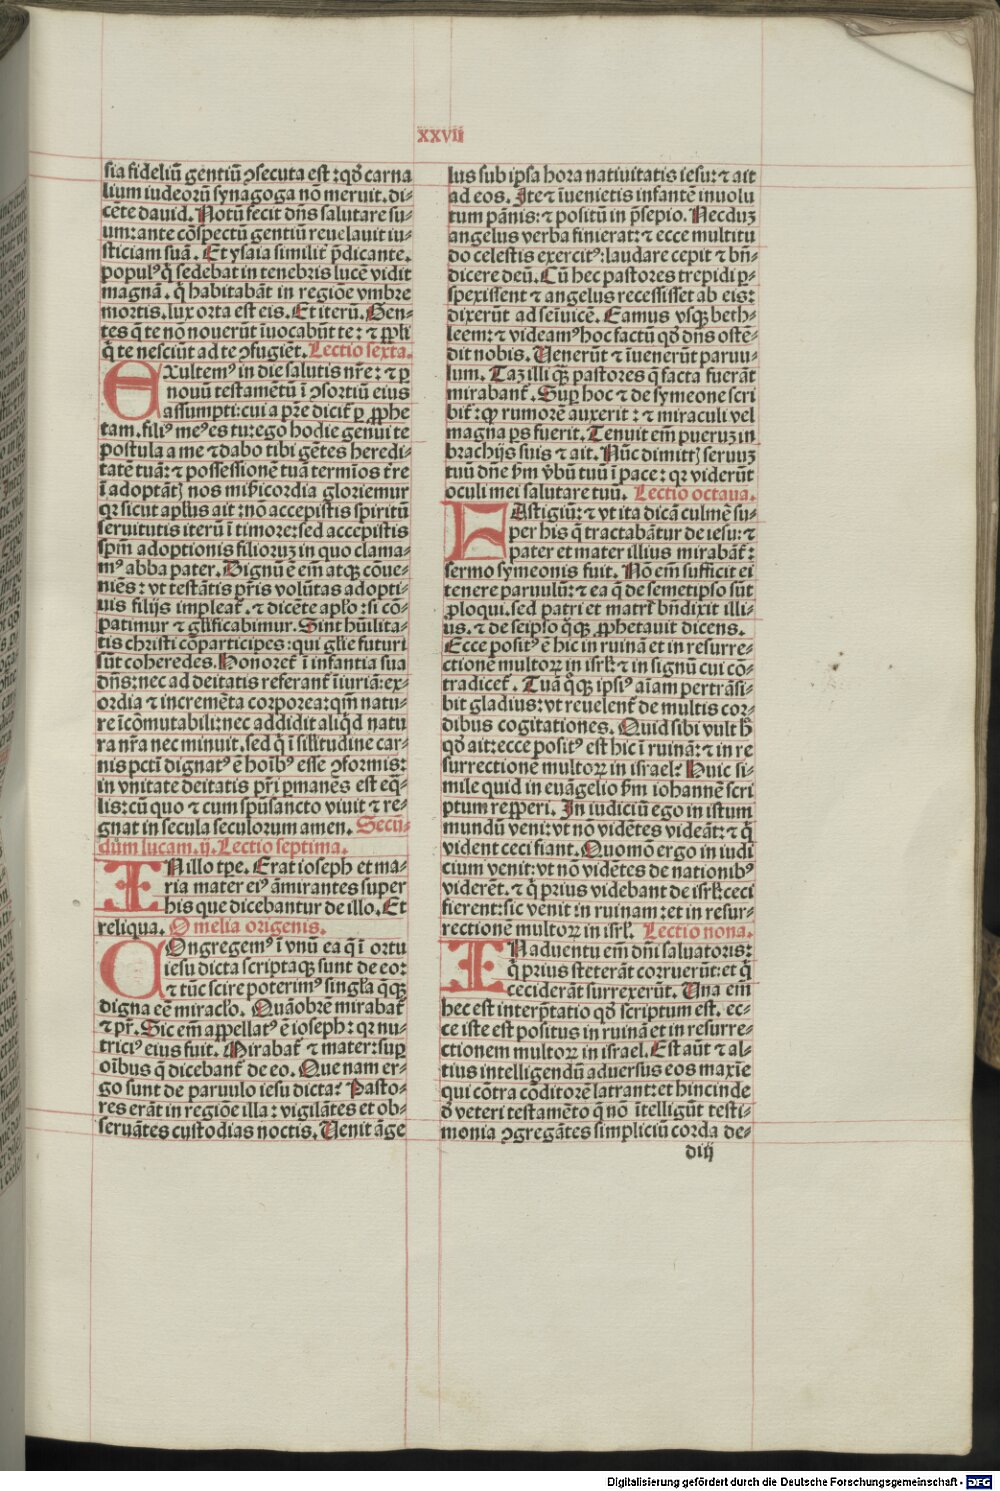 xxvii
sia fideliū gentiū ꝯsecuta est: qd̄ carna
lium iudeorū synagoga nō meruit. di-
cēte dauid. Notū fecit dn̄s salutare su-
um: ante cōspectū gentiū reuelauit iu-
sticiam suā. Et ysaia similit̄ p̄dicante.
popul⁹ q̄ sedebat in tenebris lucē vidit
magnā. q̄ habitabāt in regiōe vmbre
mortis. lux orta est eis. Et iterū. Gen-
tes q̄ te nō nouerūt īuocabūt te: ⁊ ppl̄i
q̄ te nesciūt ad te ꝯfugiēt. Lectio sexta.
Exultem⁹ in die salutis nr̄e: ⁊ ꝑ
nouū testamētū ī ꝯsortiū eius
assumpti: cui a pr̄e dicit̄ ꝑ ꝓphe
tam. fili⁹ me⁹ es tu: ego hodie genui te
postula a me ⁊ dabo tibi gētes heredi-
tatē tuā: ⁊ possessionē tuā termīos t̄re
ī adoptātꝫ nos mīs̄icordia gloriemur
qr sicut apl̄us ait: nō accepistis spiritū
seruitutis iterū ī timore: sed accepistis
spm̄ adoptionis filioruꝫ in quo clama-
m⁹ abba pater. Dignū ē em̄ atqꝫ cōue-
niēs: vt testātis pr̄is volūtas adopti-
uis filijs impleat̄. ⁊ dicēte apl̄o: si cō-
patimur ⁊ gl̄ificabimur. Sint hūilita-
tis christi cōparticipes: qui gl̄ie futuri
sūt coheredes. Honoret̄ ī infantia sua
dn̄s: nec ad deitatis referant̄ īiuriā: ex-
ordia ⁊ incremēta corporea: qm̄ natu-
re īcōmutabili: nec addidit aliqd natu
ra nr̄a nec minuit. sed q̄ ī sil̄itudine car-
nis pctī dignat⁹ ē hoīb⁹ esse ꝯformis:
in vnitate deitatis pr̄i ꝑmanēs est eq̄-
lis: cū quo ⁊ cum spūsancto viuit ⁊ re-
gnat in secula seculorum amen. Secū-
dum lucam. ij. Lectio septima.
IN illo tpe. Erat ioseph et ma-
ria mater ei⁹ āmirantes super
his que dicebantur de illo. Et
reliqua. Omelia origenis.
COngregem⁹ ī vnū ea q̄ ī ortu
iesu dicta scriptaqꝫ sunt de eo:
⁊ tūc scire poterim⁹ singl̄a q̄qꝫ
digna eē miracl̄o. Quāobrē mirabat̄
⁊ pr̄. Sic em̄ appellat⁹ ē ioseph: qr nu-
trici⁹ eius fuit. Mirabat̄ ⁊ mater: suꝑ
oībus q̄ dicebant̄ de eo. Que nam er-
go sunt de paruulo iesu dicta? Pasto-
res erāt in regiōe illa: vigilātes et ob-
seruātes custodias noctis. Uenit āge
lus sub ipsa hora natiuitatis iesu: ⁊ ait
ad eos. Ite ⁊ īuenietis infantē inuolu
tum pānis: ⁊ positū in p̄sepio. Necduꝫ
angelus verba finierat: ⁊ ecce multitu
do celestis exercit⁹: laudare cepit ⁊ bn̄-
dicere deū. Cū hec pastores trepidi ꝑ-
spexissent ⁊ angelus recessisset ab eis:
dixerūt ad seīuicē. Eamus vsqꝫ beth-
leem: ⁊ videam⁹ hoc factū qd̄ dn̄s ostē-
dit nobis. Uenerūt ⁊ īuenerūt paruu-
lum. Taꝫ illi qꝫ pastores q̄ facta fuerāt
mirabant̄. Suꝑ hoc ⁊ de symeone scri
bit̄: qꝙ rumorē auxerit: ⁊ miraculi vel
magna ꝑs fuerit. Tenuit em̄ pueruꝫ in
brachijs suis ⁊ ait. Nūc dimittꝫ seruuꝫ
tuū dn̄e ẜm ṽbū tuū ī pace: qr viderūt
oculi mei salutare tuū. Lectio octaua.
FAstigiū: ⁊ vt ita dicā culmē su-
per his q̄ tractabātur de iesu: ⁊
pater et mater illius mirabāt̄:
sermo symeonis fuit. Nō em̄ sufficit ei
tenere paruulū: ⁊ ea q̄ de semetipso sūt
ꝓloqui. sed patri et matri bn̄dixit illi-
us. ⁊ de seipso q̊qꝫ ꝓphetauit dicens.
Ecce posit⁹ ē hic in ruinā et in resurre-
ctionē multoꝝ in isrl̄: ⁊ in signū cui cō-
tradicet̄. Tuā q̊qꝫ ipsi⁹ aīam pertrāsi-
bit gladius: vt reuelent̄ de multis cor-
dibus cogitationes. Quid sibi vult h̊
qd̄ ait: ecce posit⁹ est hic ī ruinā: ⁊ in re
surrectionē multoꝝ in israel? Huic si-
mile quid in euāgelio ẜm iohannē scri
ptum repperi. In iudiciū ego in istum
mundū veni: vt nō vidētes videāt: ⁊ q̄
vident ceci fiant. Quomō ergo in iudi
cium venit: vt nō vidētes de nationib⁹
viderēt. ⁊ q̄ prius videbant de isrl̄: ceci
fierent: sic venit in ruinam: et in resur-
rectionē multoꝝ in isrl̄. Lectio nona.
IN aduentu em̄ dn̄i saluatoris:
q̄ prius steterāt corruerūt: et q̄
ceciderāt surrexerūt. Una em̄
hec est interp̄tatio qd̄ scriptum est. ec-
ce iste est positus in ruinā et in resurre-
ctionem multoꝝ in israel. Est aūt ⁊ al-
tius intelligendū aduersus eos maxīe
qui cōtra cōditorē latrant: et hincinde
d̄ veteri testamēto q̄ nō ītelligūt testi-
monia ꝯgregātes simpliciū corda de-
diij
Digitalisierung gefördert durch die Deutsche Forschungsgemeinschaft - DFG